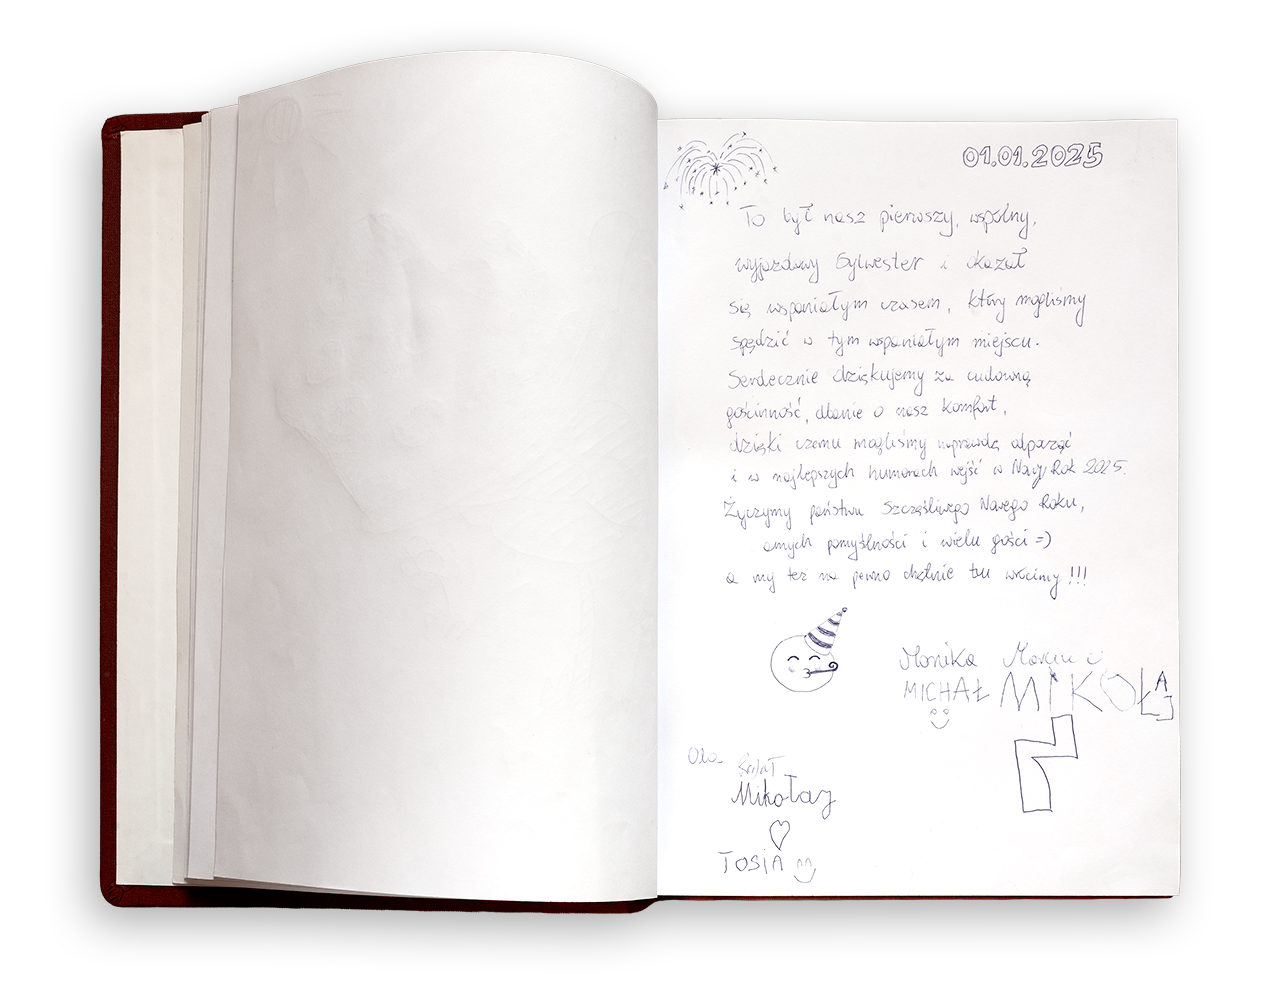 01.01.2025
To był nasz pierwszy, wspólny,
wyjazdowy Sylwester i okazał
się wspaniałym czasem, który mogliśmy
spędzić w tym wspaniałym miejscu.
Serdecznie dziękujemy za cudowną
gościnność, dbanie o nasz komfort,
dzięki czemu mogliśmy naprawdę odpocząć
i w najlepszych humorach wejść w Nowy Rok 2025.
Życzymy państwu Szczęśliwego Nowego Roku,
samych pomyślności i wielu gości =)
a my też na pewno chętnie tu wrócimy !!!
Monika Marcin i
MICHAŁ MIKOŁAJ
Ola Rafał
Mikołaj
TOSIA